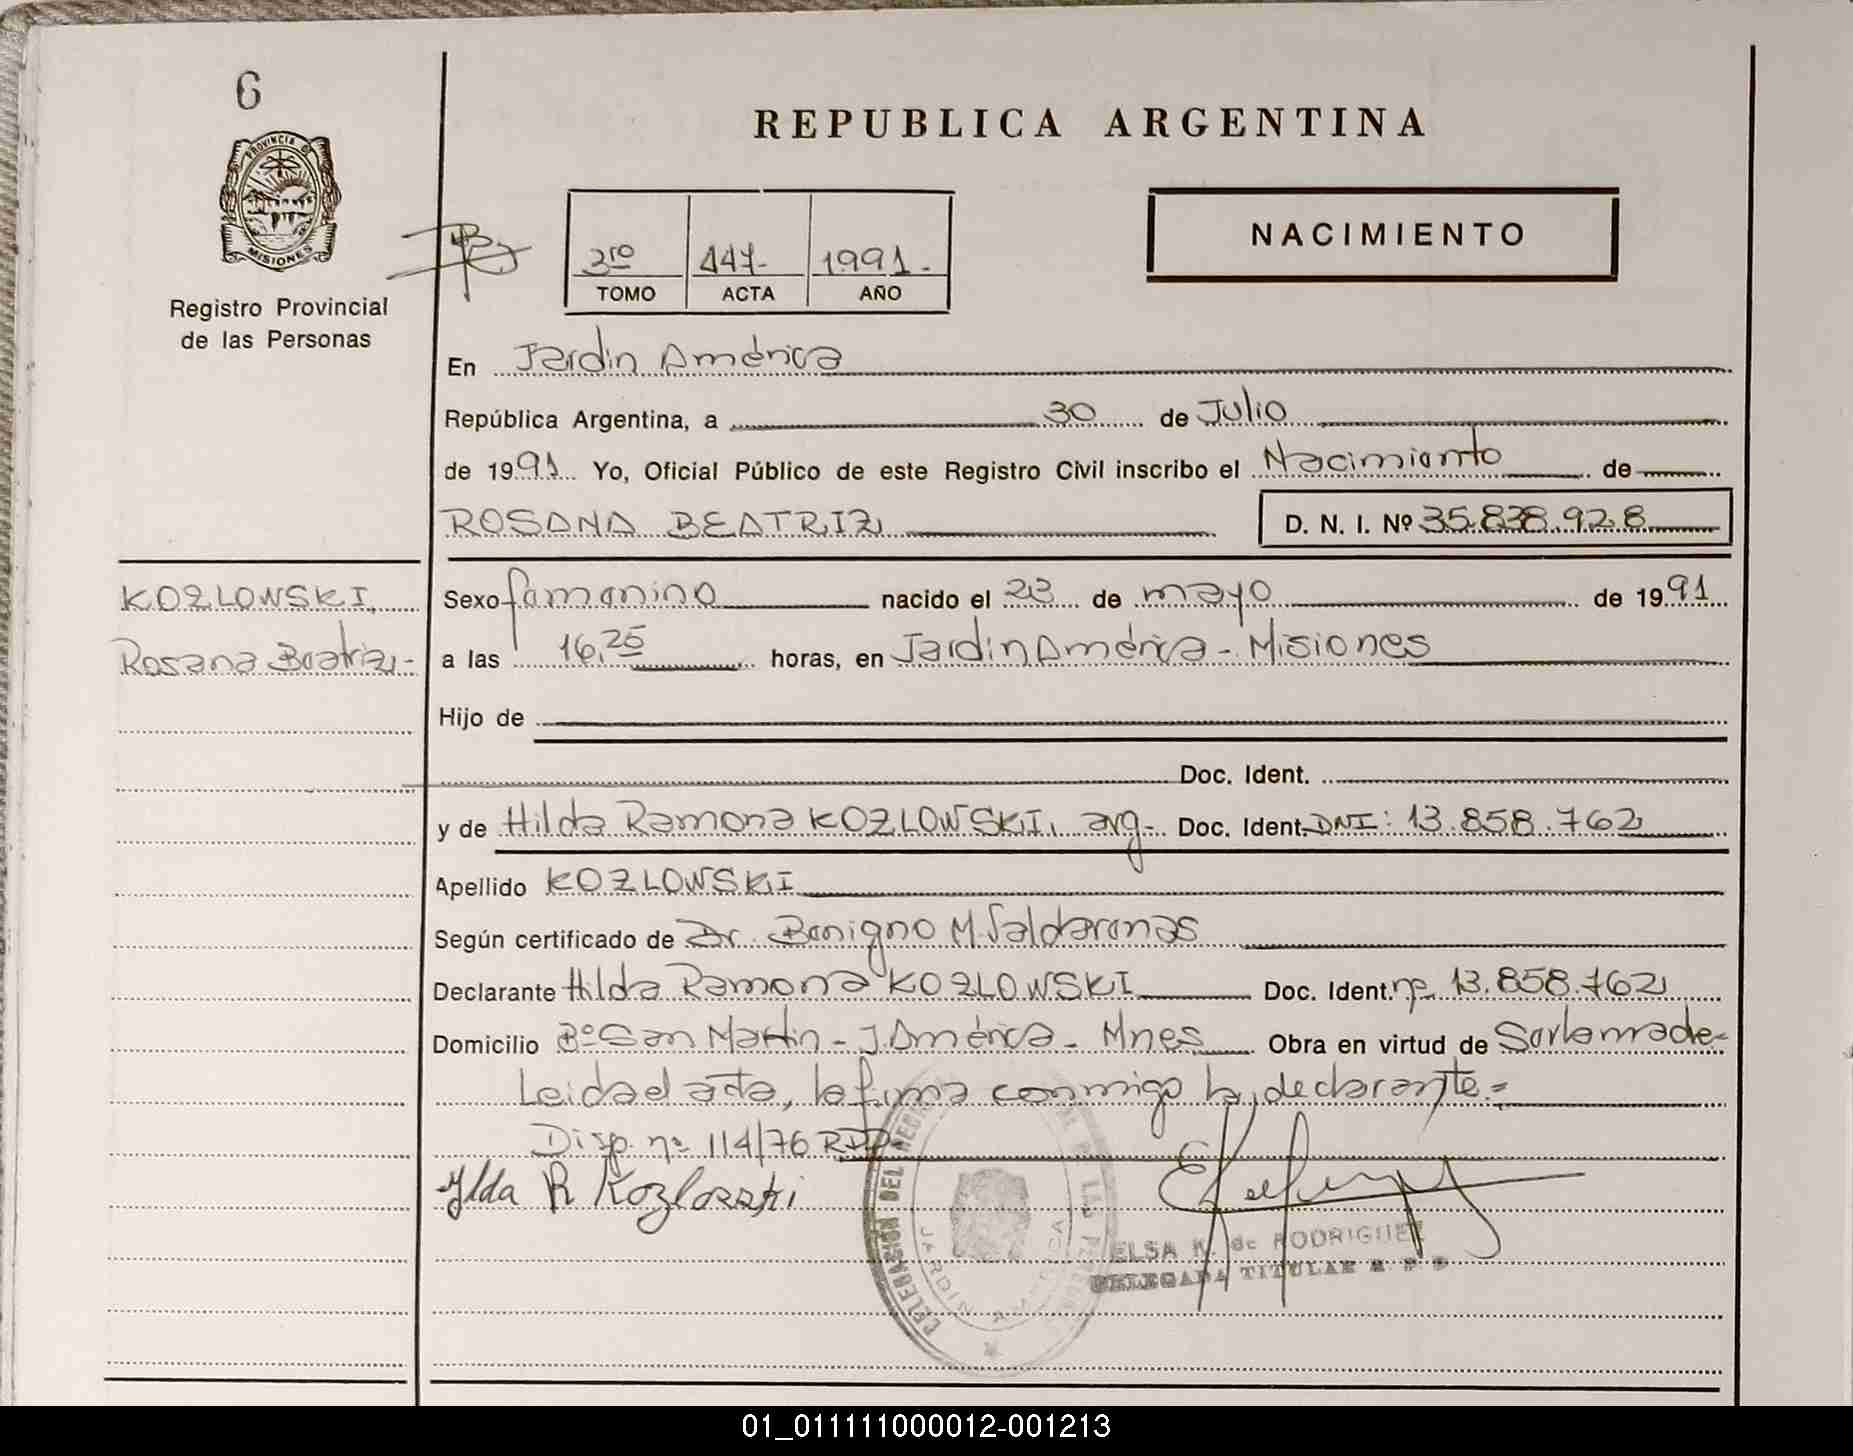 6
PROVINCIA DE
MISIONES
Registro Provincial
de las Personas
REPUBLICA ARGENTINA
NACIMIENTO
3ro 447- 1991.-
TOMO ACTA AÑO
En Jardin América
República Argentina, a 30 de Julio
de 1991 Yo, Oficial Público de este Registro Civil inscribo el Nacimiento de
ROSANA BEATRIZ D. N. I. Nº 35.838.928
KOZLOWSKI,
Rosana Beatriz.-
Sexo femenino nacido el 23 de mayo de 1991
a las 16,25 horas, en Jardin América - Misiones
Hijo de
Doc. Ident.
y de Hilda Ramona KOZLOWSKI, arg.- Doc. Ident. DNI: 13.858.762
Apellido KOZLOWSKI
Según certificado de Dr. Benigno M.
Declarante Hilda Ramona KOZLOWSKI Doc. Ident. nº 13.858.762
Domicilio Bº San Martin - J. América - Mnes Obra en virtud de
Leida el acta, la firma conmigo la declarante.=
Disp. nº 114/76 RPP-
Ilda R Kozlosski
JARDIN AMERICA
ELSA K. de RODRIGUEZ
DELEGADA TITULAR R P P
01_011111000012-001213